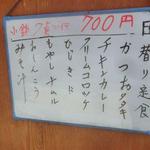 日替り定食
かつおタタキ
チキンカレー
クリームコロッケ
700円
小鉢
ひじき
もやしナムル
おしんこう
みそ汁